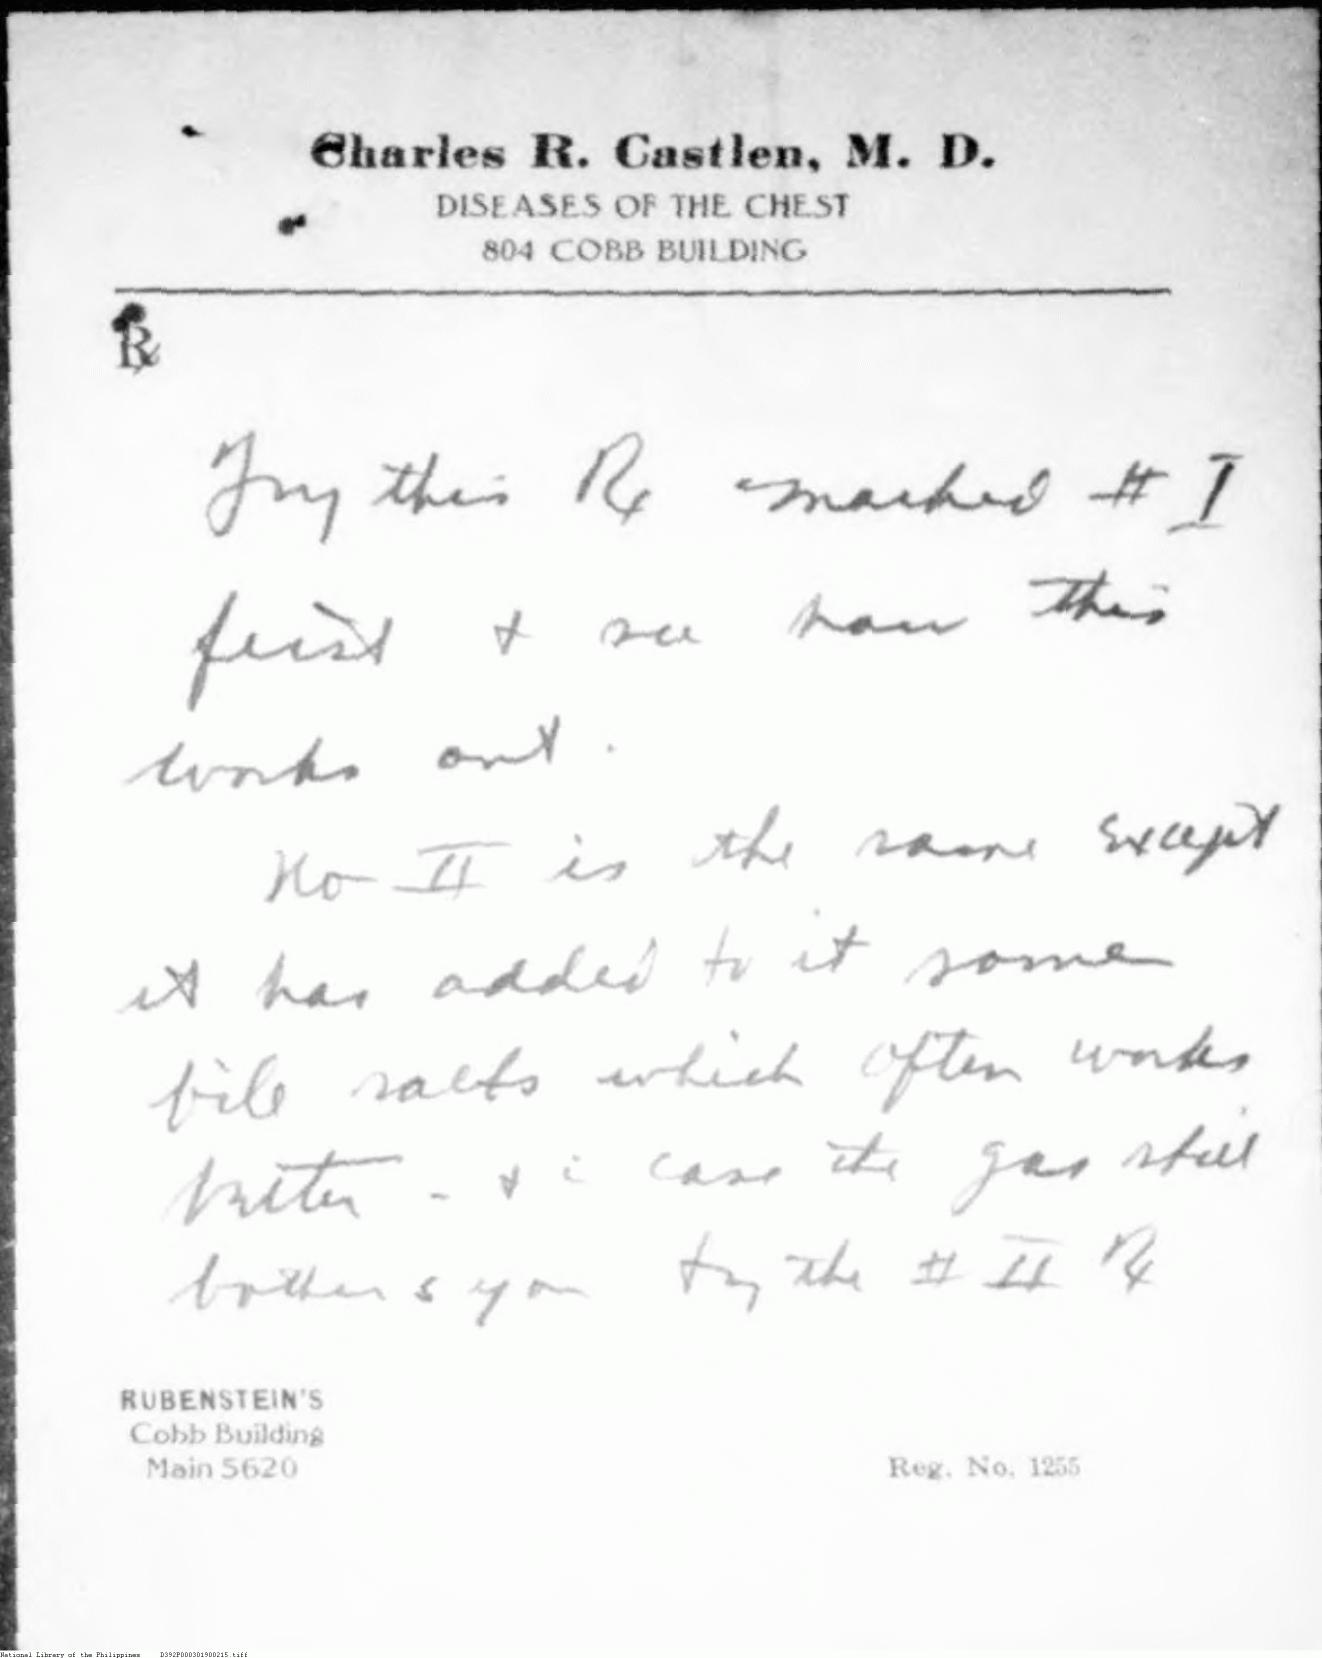 Charles R. Castlen, M. D.
DISEASES OF THE CHEST
804 COBB BUILDING
℞
Try this ℞ marked # I
first & see how this
works out.
No II is the same except
it has added to it some
bile salts which often works
better - & i case the gas still
bothers you try the # II ℞
RUBENSTEIN'S
Cobb Building
Main 5620
Reg. No. 1255
National Library of the Philippines D392P000301900215.tiff